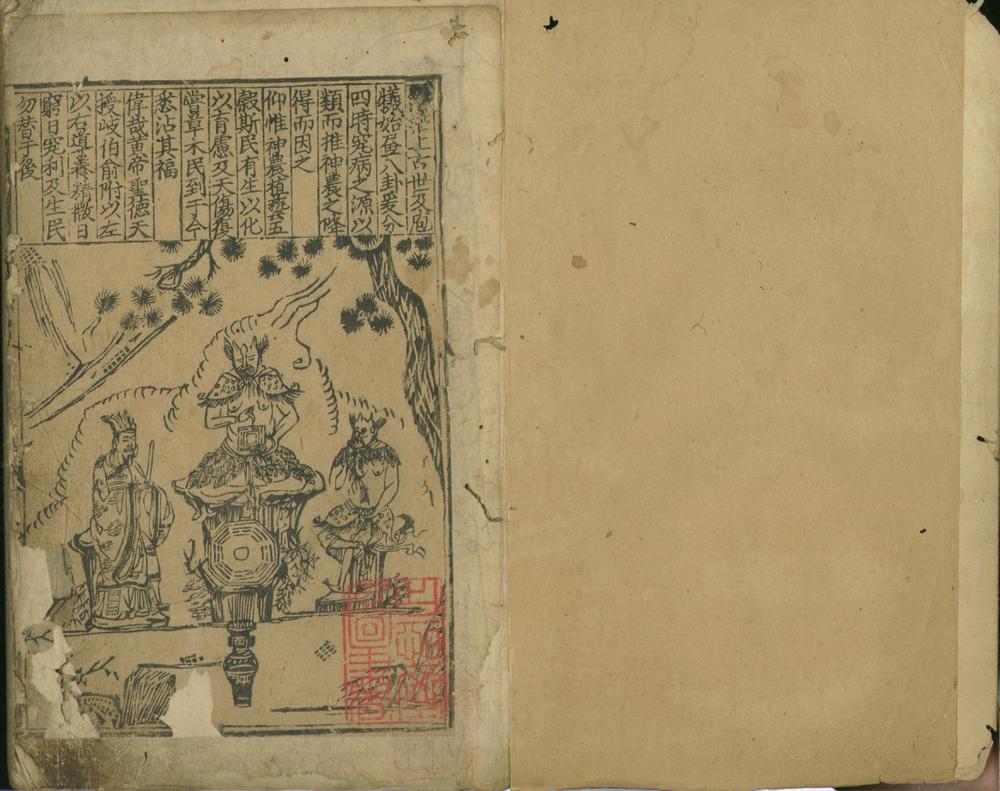 上古世及庖
犧始畫八卦爰分
四時究病之源以
類而推神農之降
得而因之
仰惟神農植藝五
穀斯民有生以化
以育慮及夭傷復
嘗草木民到于今
悉沾其福
偉哉黄帝聖德天
授岐伯俞附以左
以右導養精微日
窮日究利及生民
勿替于後